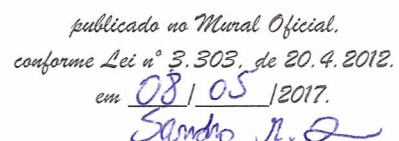 publicado no Mural Oficial,
conforme Lei nº 3.303, de 20.4.2012.
em 08/05/2017.
Sandro